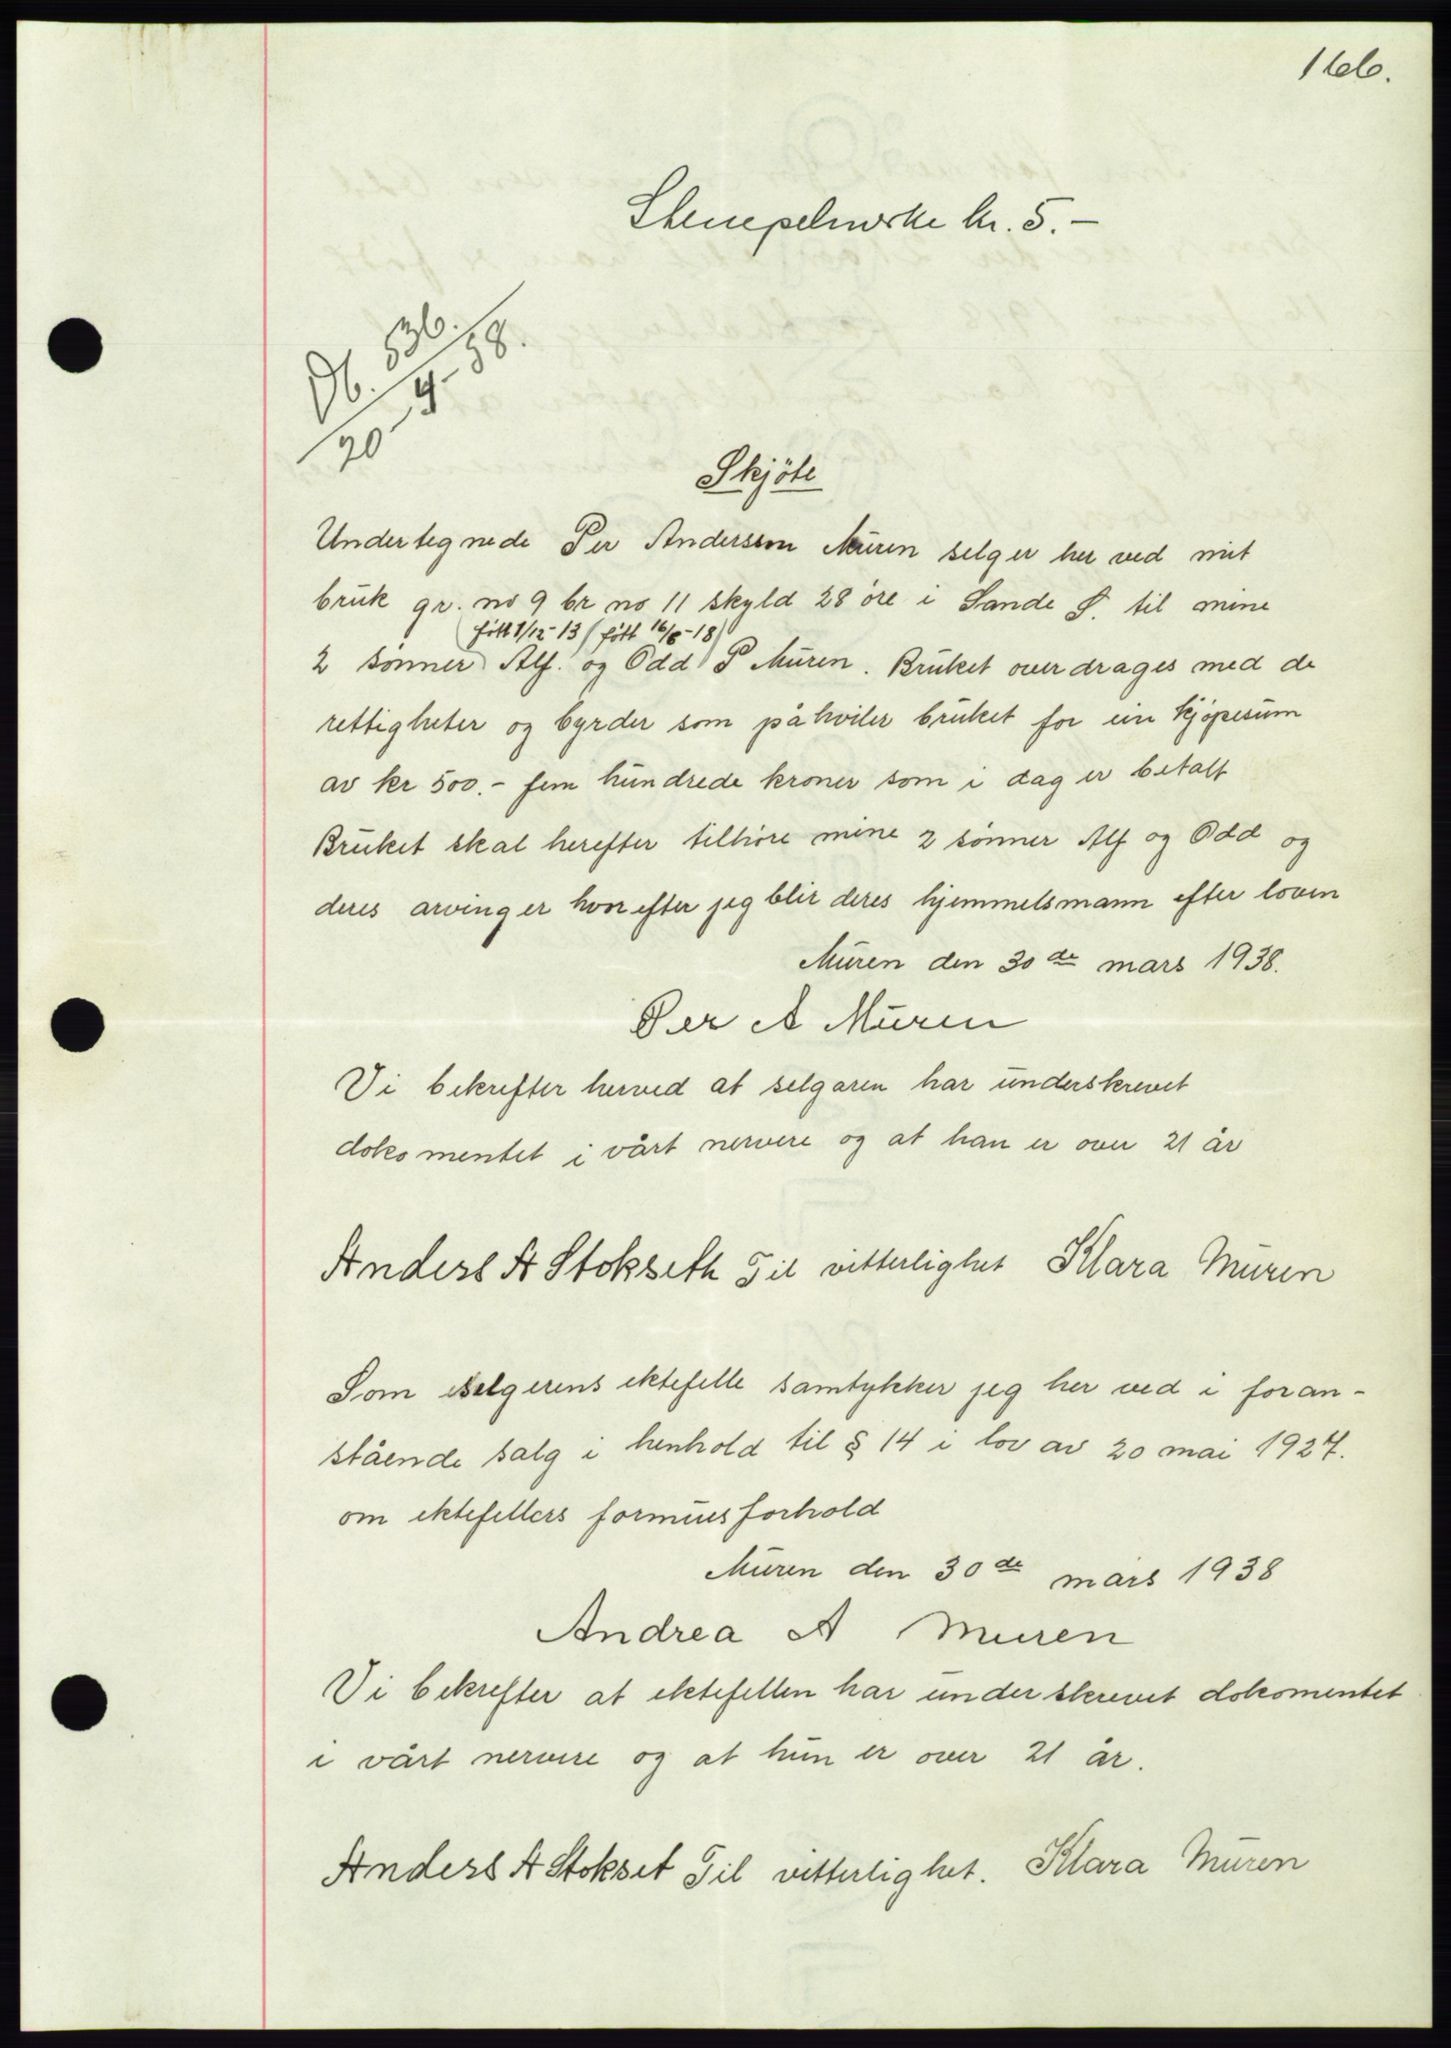 166.
Stempelmerke kr. 5.-
Db. 536.
20-4-38.
Skjöte
Undertegnede Per Anderssen Muren selger her ved mit
bruk gr. no 9 br no 11 skyld 28 øre i Sande S. til mine
(født 1/12-13) (født 16/8-18)
2 sønner Alf. og Odd P Muren. Bruket overdrages med de
rettigheter og byrder som påhviler bruket for ein kjøpesum
av kr 500.- fem hundrede kroner som i dag er betalt
Bruket skal herefter tilhøre mine 2 sønner Alf og Odd og
deres arvinger hvorefter jeg blir deres hjemmelsmann efter loven
Muren den 30de mars 1938.
Per A Muren
Vi bekrefter herved at selgaren har underskrevet
dokomentet i vårt nervere og at han er over 21 år
Anders A Stokseth Til vitterlighet Klara Muren
Som selgerens ektefelle samtykker jeg her ved i foran-
stående salg i henhold til § 14 i lov av 20 mai 1927.
om ektefellers formuesforhold
Muren den 30de mars 1938
Andrea A Muren
Vi bekrefter at ektefellen har underskrevet dokomentet
i vårt nervere og at hun er over 21 år.
Anders A Stokset Til vitterlighet. Klara Muren